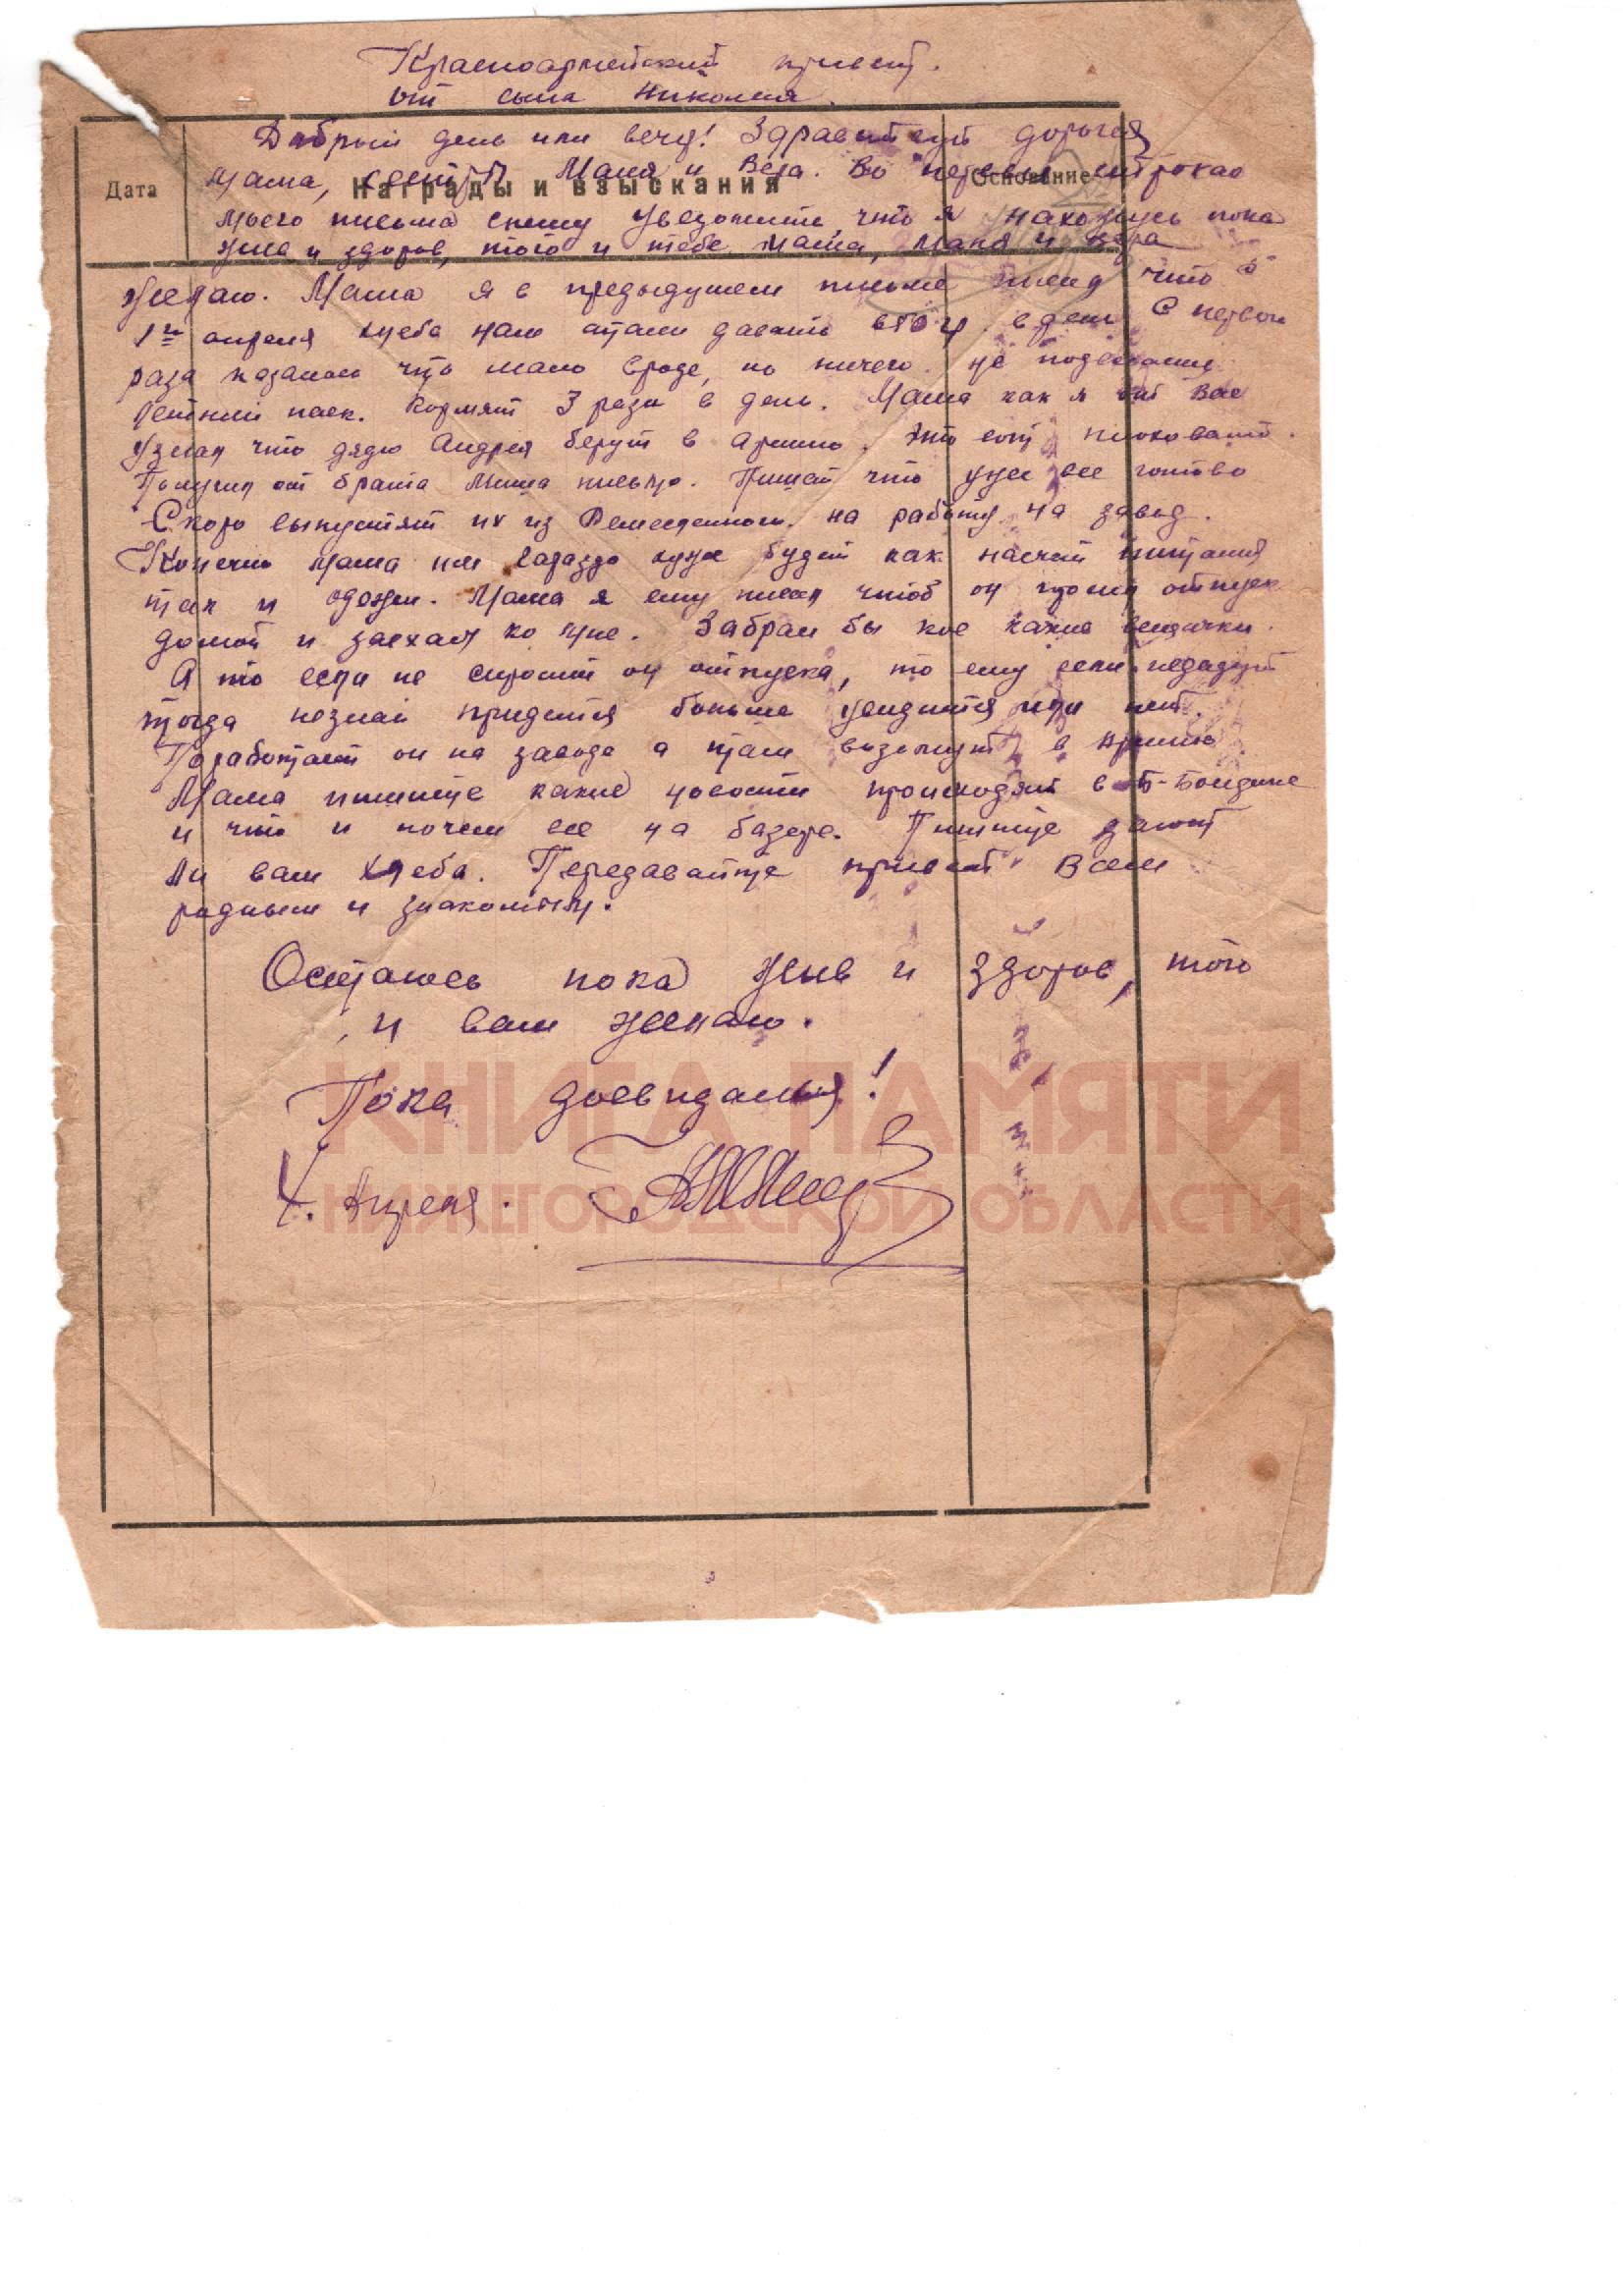 Красноармейский привет.
от сына Николая.
Добрый день или вечер! Здравствуй дорогая
мама, сестры Маня и Вера. Во первых строках
Дата Награды и взыскания Основание
моего письма спешу уведомить, что я нахожусь пока
жив и здоров, того и тебе мама, Маня и Вера
желаю. Мама я в предыдущем письме писал что с
1го апреля хлеба нам стали давать в день С первого
раза казалось что мало вроде, но ничего.
Летний паек. Кормят 3 раза в день. Мама как я от Вас
узнал что дядю Андрея берут в армию. Это есть плоховато.
Получил от брата Миша письмо. Пишет что уже все готово
Скоро выпустят их из Ремесленного на работу на завод.
Конечно мама им гораздо хуже будет как насчет питания
так и одежи. Мама я ему писал чтоб он просил отпуск
домой и заехал ко мне. Забрал бы кое какие вещички.
А то если не спросит он отпуска, то ему если недадут
тогда незнаю придется больше увидится или нет.
Поработает он на заводе а там возьмут в армию
Мама пишите какие новости происходят в Б-Болдине
и что и почем все на базере. Пишите дают
ли вам хлеба. Передавайте привет Всем
родным и знакомым.
Остаюсь пока жив и здоров, того
и вам желаю.
Пока досвидания!
Апреля.
КНИГА ПАМЯТИ
НИЖЕГОРОДСКОЙ ОБЛАСТИ